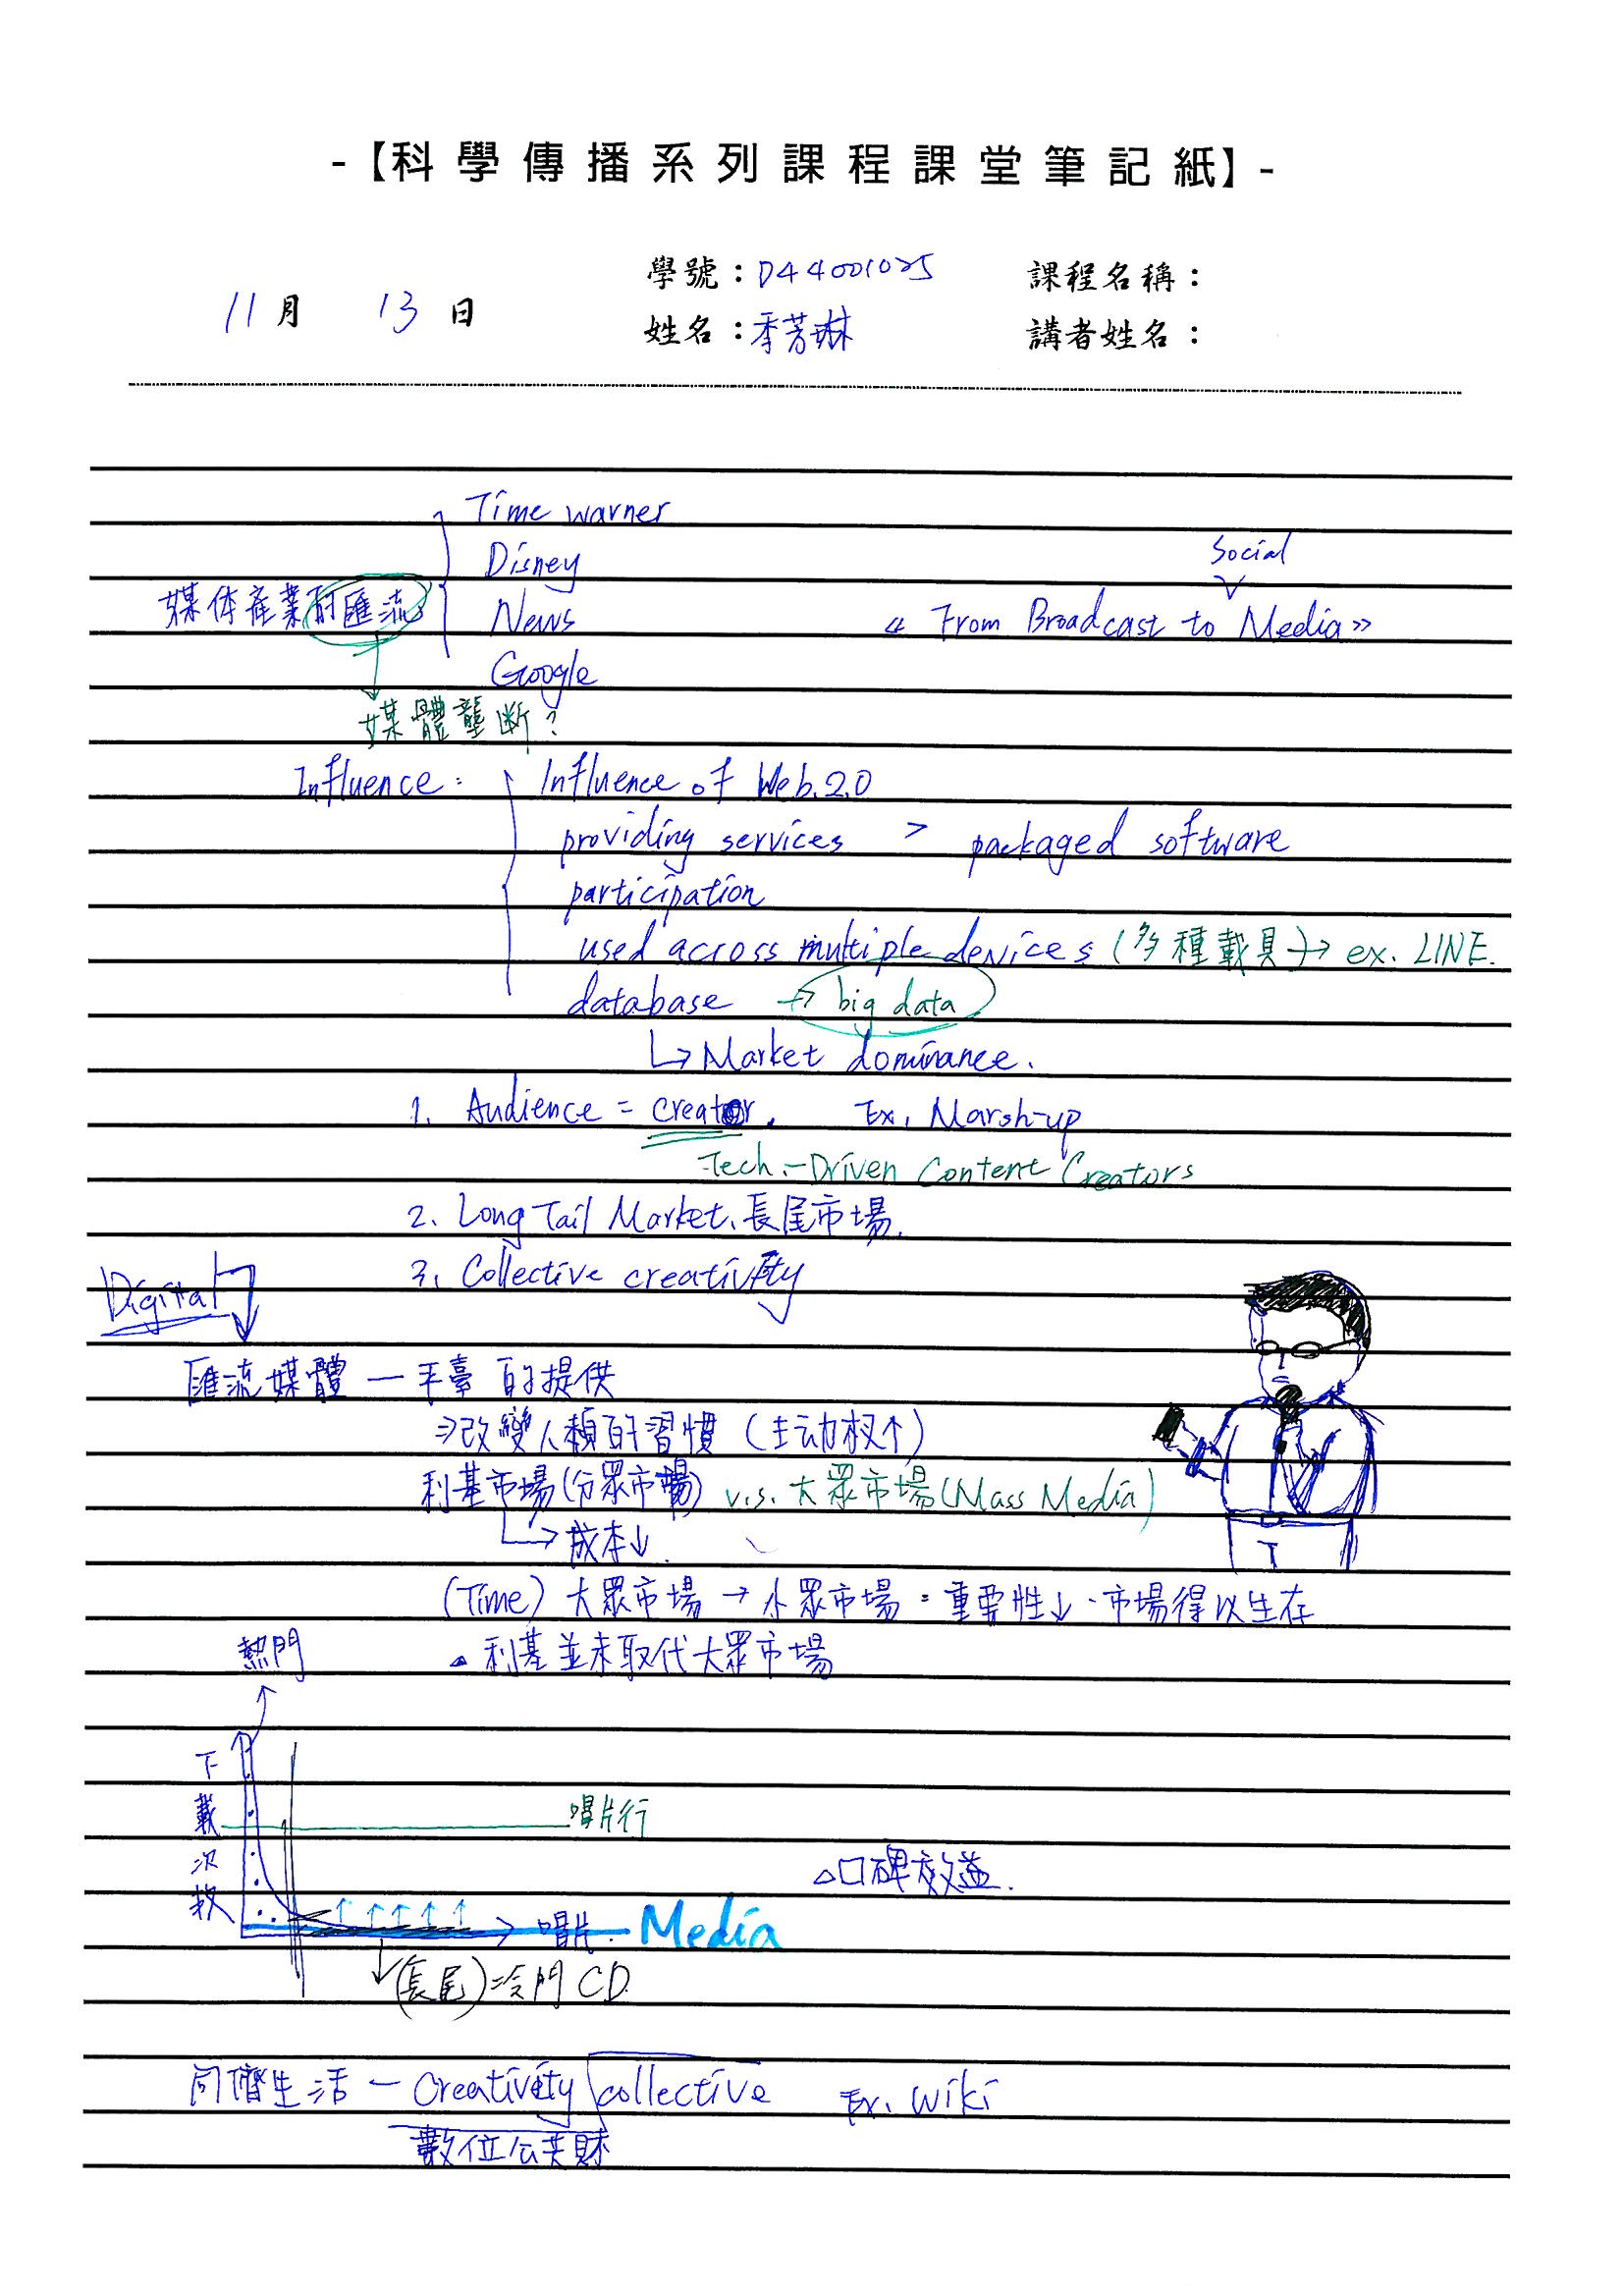 -【科學傳播系列課程課堂筆記紙】-
學號：D44001025 課程名稱：
11月 13日
姓名：季芳琳 講者姓名：
Time warner
Disney
Social
媒体產業的匯流
News
« From Broadcast to Media»
Google
媒體壟斷?
Influence: Influence of Web.2.0
providing services > packaged software
participation
used across multiple devices (多種載具)→ ex. LINE.
database → big data
↳ Market dominance.
1. Audience = creator. Ex. Marsh-up
Tech.-Driven Content Creators
2. Long Tail Market、長尾市場.
3. Collective creativity
Digital
匯流媒體 — 平臺的提供
⇒改變人類的習慣 (主动权↑)
利基市場(分眾市場) v.s. 大眾市場(Mass Media)
↳成本↓.
(Time) 大眾市場 → 小眾市場 = 重要性↓、市場得以生在
利基並未取代大眾市場
熱門
下載次數
唱片行
△口碑效益.
唱片. Media
(長尾)=冷門CD
同儕生活 — Creativity collective Ex. Wiki
數位公共財